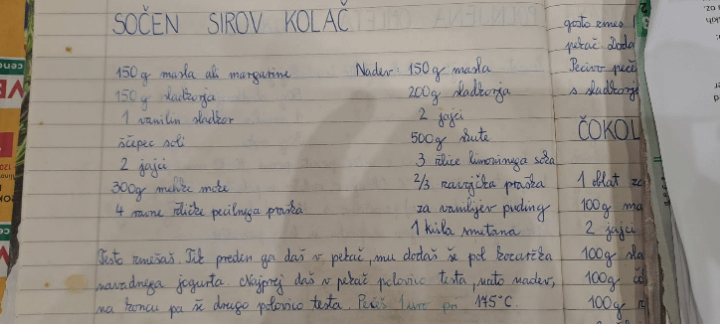 SOČEN SIROV KOLAČ
150g masla ali margarine
150g sladkorja
1 vanilin sladkor
ščepec soli
2 jajci
300g mehke moke
4 ravne žličke pecilnega praška
Nadev 150g masla
200g sladkorja
2 jajci
500g skute
3 žlice limoninega soka
2/3 zavojčka praška
za vanilijev puding
1 kisla smetana
Testo zmešaš. Tik preden ga daš v pekač, mu dodaš še pol kozarčka
navadnega jogurta. Najprej daš v pekač polovico testa, nato nadev,
na koncu pa še drugo polovico testa. Pečeš 1 uro pri 175°C
gosto zmes
pekač doda
Pecivo peči
s sladkorje
ČOKOL
1 oblat za
100g ma
2 jajc
100g sla
100g
100g